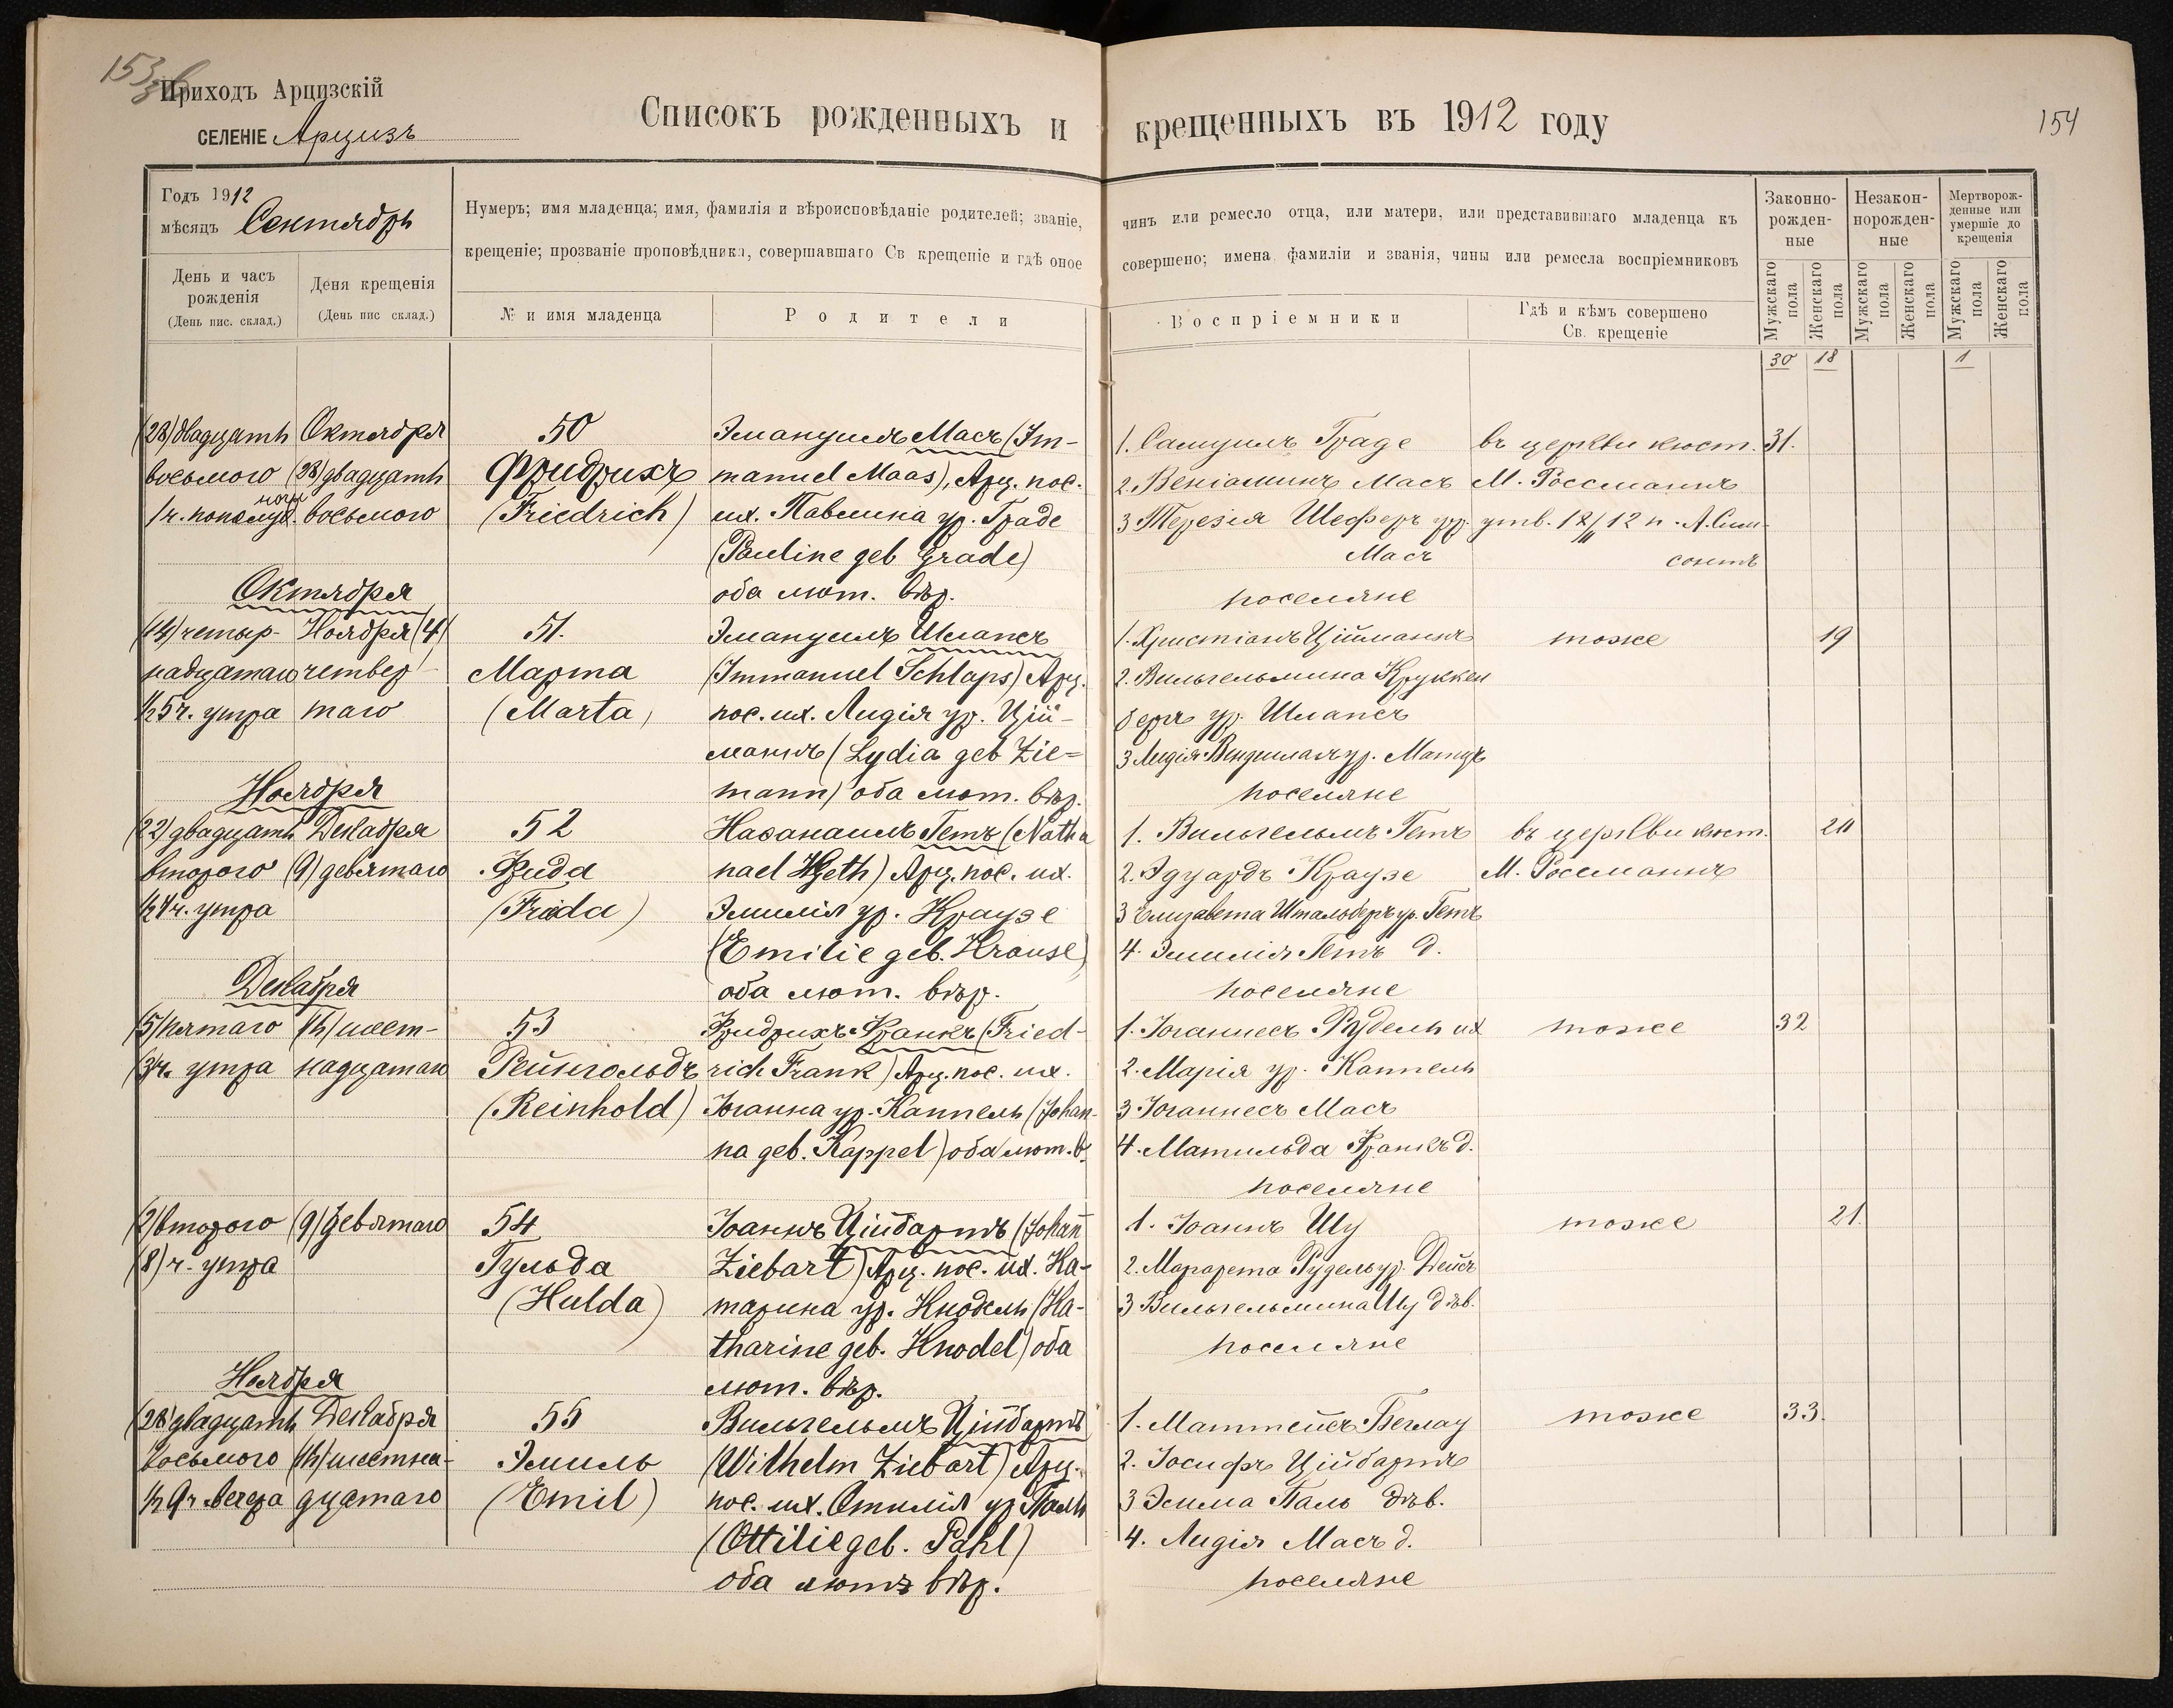 153
Приходъ Арцизскій
СЕЛЕНІЕ Арцизъ
Списокъ рожденныхъ и крещенныхъ въ 1912 году
154
Годъ 1912
мѣсяцъ Сентябрь
День и часъ рожденія
(День пис. склад.)
Деня крещенія
(День пис склад.)
Нумеръ; имя младенца; имя, фамилія и вѣроисповѣданіе родителей; званіе, чинъ или ремесло отца, или матери, или представившаго младенца къ
крещеніе; прозваніе проповѣдника, совершавшаго Св крещеніе и гдѣ оное совершено; имена фамиліи и званія, чины или ремесла воспріемниковъ
№ и имя младенца
Родители
Воспріемники
Гдѣ и кѣмъ совершено
Св. крещеніе
Законно-
рожден-
ные
Незакон-
норожден-
ные
Мертворож-
денные или
умершіе до
крещенія
Мужскаго пола
Женскаго пола
Мужскаго пола
Женскаго пола
Мужскаго пола
Женскаго пола
30 18 1
(28) двадцать Октября 50 Эмануилъ Масъ (Im- 1. Самуилъ Граде въ церкви кюст. 31.
восьмого (28) двадцать Фридрихъ manuel Maas), Арц. пос. 2. Веніаминъ Масъ М. Россманнъ
1 ч. пополуд. восьмого (Friedrich) их. Павлина ур. Граде 3 Терезія Шеферъ ур. утв. 12/11 12 п. А.
ночи
(Pauline geb Grade) Масъ
Октября оба лют. вѣр. поселяне
(14) четыр- Ноября (4) 51. Эмануилъ Шлапсъ 1. Христіанъ Ційманнъ тоже 19
надцатаго четвер- Марта (Immanuel Schlaps) Арц. 2. Вильгельмина Круккен
½ 5 ч. утра таго (Marta) пос. их. Лидія ур. Цій- бергъ ур. Шлапсъ
маннъ (Lydia geb Zie= 3 Лидія ур.
Ноября mann) оба лют. вѣр. поселяне
(22) двадцать Декабря 52 Наѳанаилъ Гетъ (Natha 1. Вильгельмъ Гетъ въ церкви кюст. 20
второго (9) девятаго Фрида nael Hgeth) Арц. пос. их. 2. Эдуардъ Краузе М. Россманнъ
½ 4 ч. утра (Frieda) Эмилія ур. Краузе 3 Елизавета ур. Гетъ
(Emilie geb. Krause) 4. Эмилія Гетъ д.
Декабря оба лют. вѣр. поселяне
(5) пятаго (16) шест- 53 Фридрихъ Франкъ (Fried- 1. Іоганнесъ Рудель их тоже 32
(3) ч. утра надцатаго Рейнгольдъ rich Frank) Арц. пос. их. 2. Марія ур. Каппель
(Reinhold) Іоганна ур. Каппель (Johan- 3 Іоганнесъ Масъ
na geb. Kappel) оба лют. в. 4. Матильда Франкъ д.
поселяне
(2) второго (9) девятаго 54 Іоаннъ Ційбартъ (Johann 1. Іоаннъ Шу тоже 21.
(8) ч. утра Гульда Ziebart) Арц. пос. их. Ка- 2. Маргарета Рудель ур. Дейсъ
(Hulda) тарина ур. Кнодель (Ka- 3 Вильгельмина Шу дѣв.
tharine geb. Knodel) оба поселяне
Ноября лют. вѣр.
(28) двадцать Декабря 55 Вильгельмъ Ційбартъ 1. Маттейсъ Беглау тоже 33.
восьмого (16) шестна- Эмиль (Wilhelm Ziebart) Арц. 2. Іосифъ Ційбартъ
½ 9 ч вечера дцатаго (Emil) пос. их. Отилія ур Паль 3 Эмма Паль дѣв.
(Ottilie geb. Pahl) 4. Лидія Масъ д.
оба лютъ вѣр. поселяне